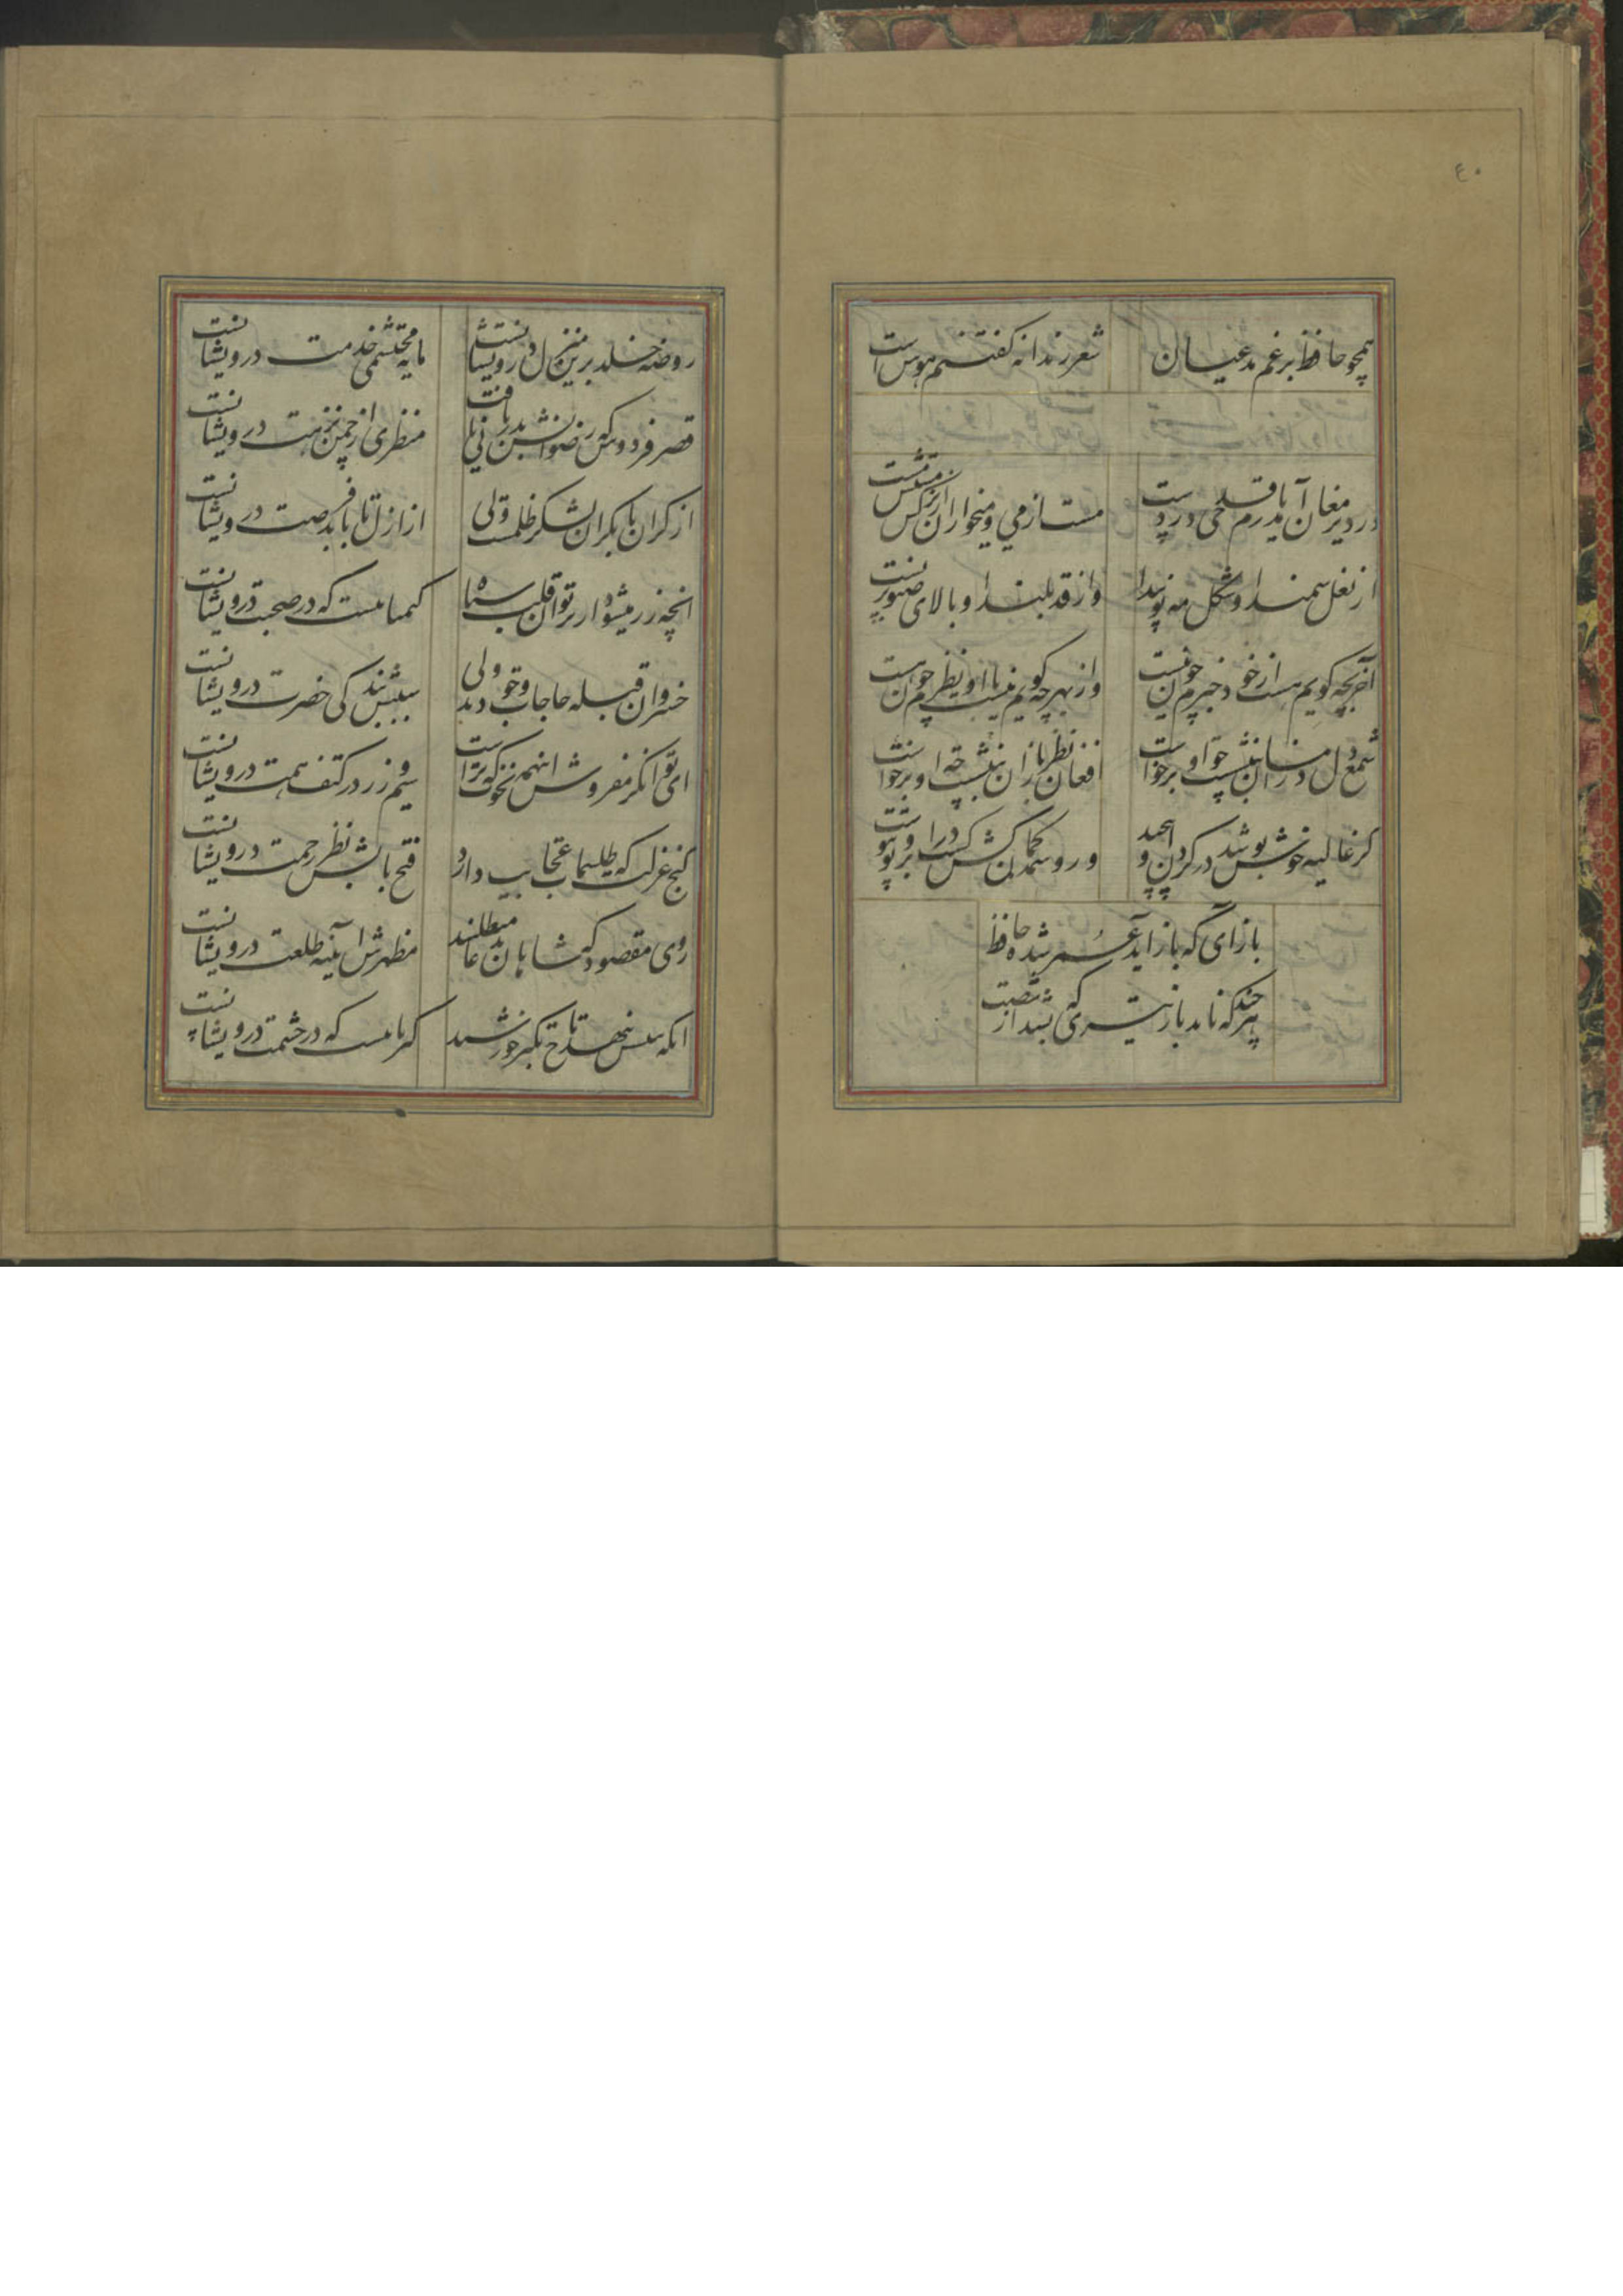 ۴۰
همچو حافظ برغم مدعیان شعر رندانه کفتنم هوس است
در دیر مغان آمد یارم قدحی در دست مست از می و میخواران از نرکس مستش مست
از نعل سمند او شکل مه نو پیدا وز قد بلند او بالای صنوبر پست
آخر بچه کویم هست از خود خبرم چون نیست وز بهر چه کویم نیست با او نظرم چون هست
شمع دل دمسازان بنشست چو او برخواست افغان ز نظربازان برخواست چو او بنشست
کر غالیه خوش بو شد در کیسوی او پیچید ور وسمه کمانکش شد در ابروی او پیوست
بازآی که باز آید عمر شده حافظ
هر چند که ناید باز تیری که بشد از شصت
روضه خلد برین منزل درویشانست مایه محتشمی خدمت درویشانست
قصر فردوس که رضوانش بدربانی یافت منظری از چمن نزهت درویشانست
از کران تا بکران لشکر ظلمست ولی از ازل تا بابد فرصت درویشانست
انچه زر میشود از پرتو ان قلب سیاه کیمیائیست که در صحبت درویشانست
خسروان قبله حاجات وجودند ولی سببش بندکی حضرت درویشانست
ای توانکر مفروش اینهمه نخوت که ترا سیم و زر در کنف همت درویشانست
کنج عزلت که طلسمات عجایب دارد فتح بابش نظر رحمت درویشانست
روی مقصود که شاهان بدعا میطلبند مظهرش اینه طلعت درویشانست
انکه پیشش بنهد تاج تکبر خورشید کبریائیست که در حشمت درویشانست